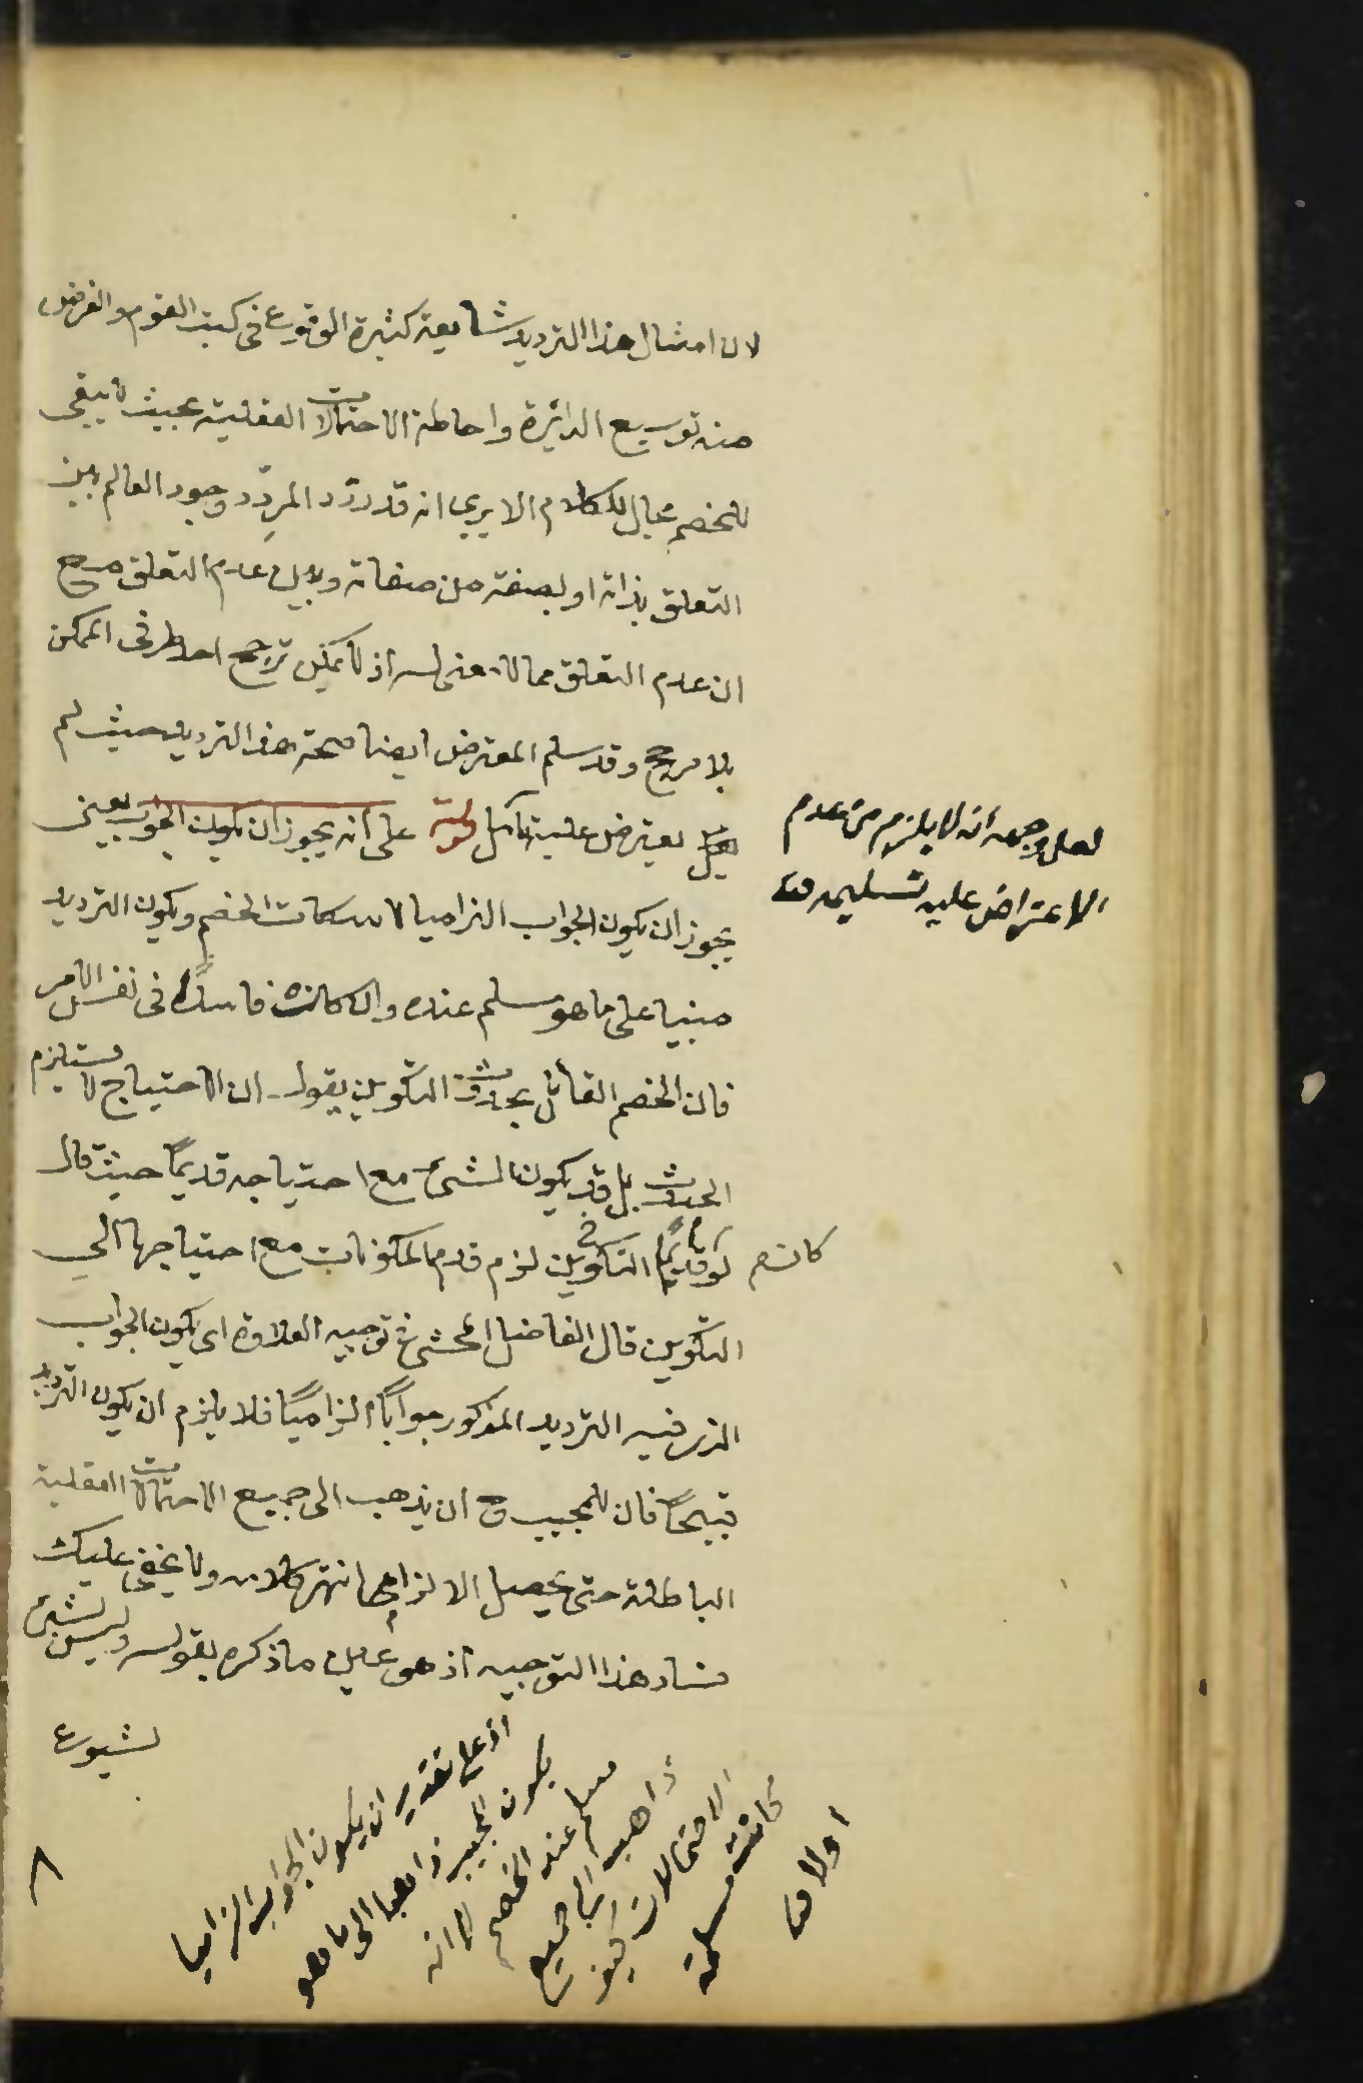 لان امثال هذا الترديد شايعة كثيرة الوقوع في كتب القوم والغرض
منه توسيع الدائرة واحاطة الاحتمالات العقلية بحيث لا يبقى
للخصم مجال للكلام الا يرى انه قد ردّد المردّد وجود العالم بين
التعلق بذاته او بصفة من صفاته وبين عدم التعلق مع
ان عدم التعلق مما لا معنى له اذ لا يمكن ترجح احد طرفي الممكن
بلا مرجح وقد سلم المعترض ايضا صحة هذا الترديد حيث لم
يعترض عليه تأمل قوله على انه يجوز ان يكون الجواب يعني
يجوز ان يكون الجواب الزاميا لاسكات الخصم ويكون الترديد
مبنيا على ما هو مسلم عنده وان كانت فاسدة في نفس الامر
فان الخصم القائل بحدوث التكوين يقول ان الاحتياج لا يستلزم
الحدوث بل قد يكون الشئ مع احتياجه قديمًا حيث قال
لو كان قديمًا التكوين لزم قدم المكونات مع احتياجها الى
التكوين قال الفاضل المحشي في توجيه العلاوة اى يكون الجواب
الذي فيه الترديد المذكور جوابًا الزاميًا فلا يلزم ان يكون الترديد
قبيحًا فان للمجيب ح ان يذهب الى جميع الاحتمالات العقلية
الباطلة حتى يحصل الالزام انتهى كلامه ولا يخفى عليك
فساد هذا التوجيه اذ هو عين ما ذكره بقوله وليس بشئ
لشيوع
لعل وجهه انه لا يلزم من عدم
الاعتراض عليه تسليمه
اذ على تقدير ان يكون الجواب الزاميا
يكون المجيب ذاهبا الى ما هو
مسلم عند الخصم لا انه
ذاهب الى جميع
الاحتمالات
كانت مسلمة
اولا
٨